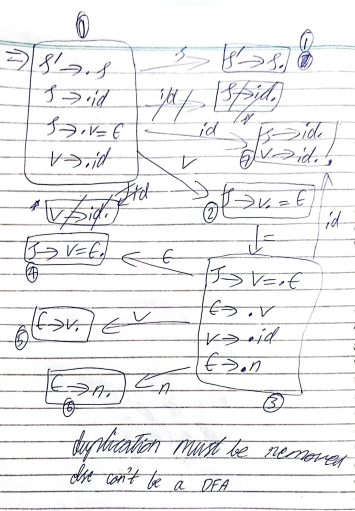 ⓪
⇒ S' → .S
S → .id
S → .V = E
V → .id
S
S' → S. ①
id
S → id.
id
S → id.
V → id. ⑦
V
id
V → id.
② S → V. = E
=
id
S → V = .E
E → .V
V → .id
E → .n
③
E
S → V = E.
④
V
E → V.
⑤
n
E → n.
⑥
duplication must be removed
else can't be a DFA